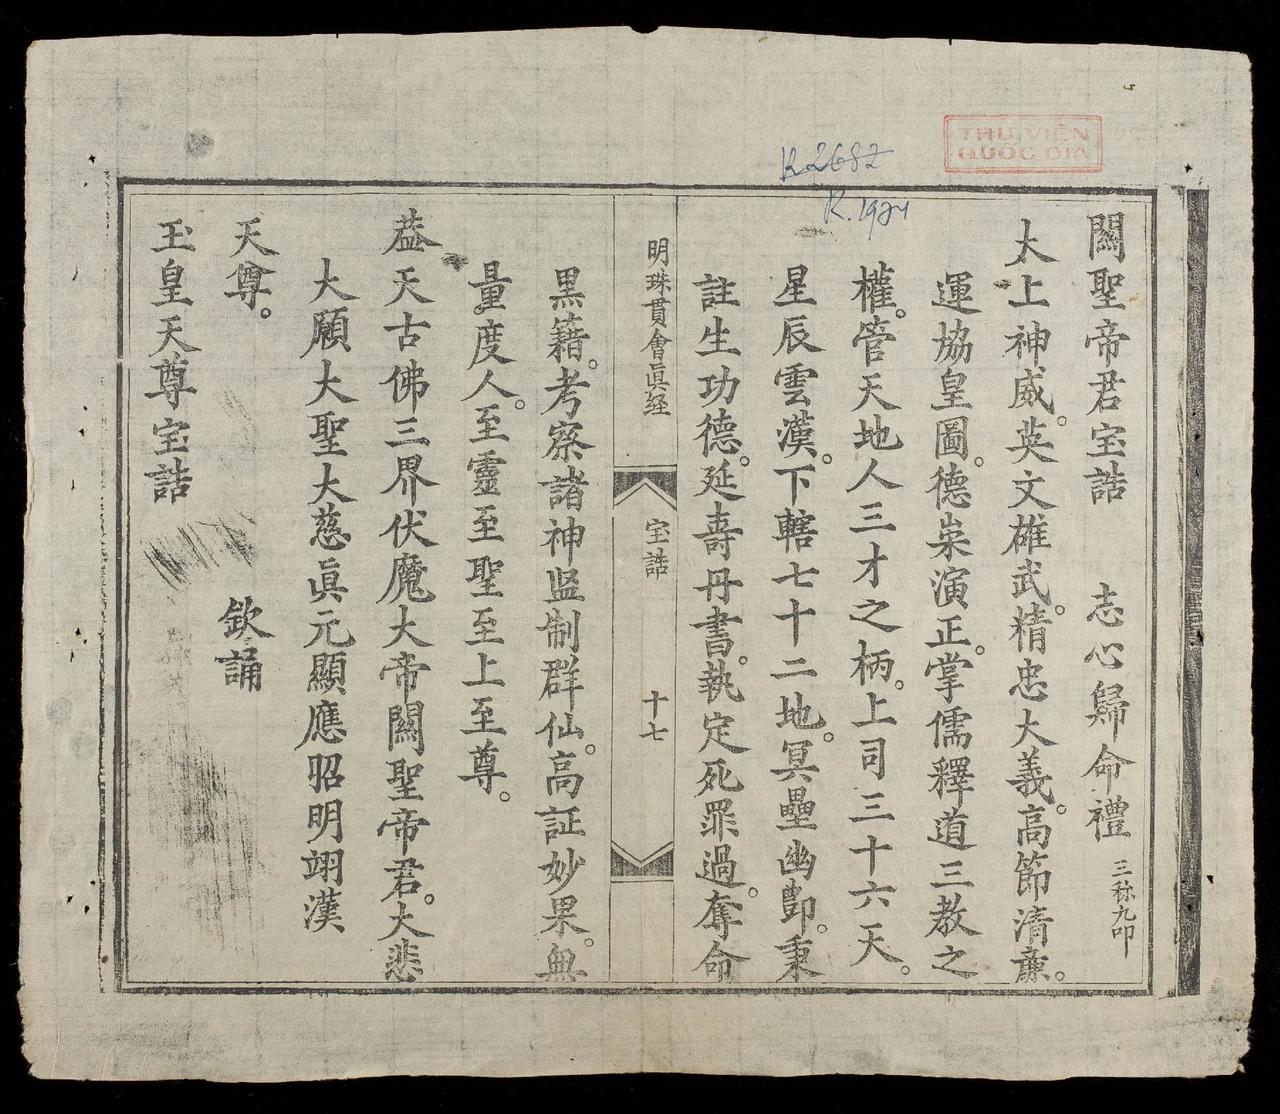 關聖帝君宝誥　志心歸命禮 三称九叩
太上神威。英文雄武。精忠大義。高節清廉。
運協皇圖。德崇演正。掌儒釋道三教之
權。管天地人三才之柄。上司三十六天。
星辰雲漢。下轄七十二地。冥壘幽酆。秉
註生功德。延壽丹書。執定死罪過。奪命
明珠貫會眞経　宝誥　十七
黒籍。考察諸神监制群仙。高証妙果。無
量度人。至靈至聖至上至尊。
蓋天古佛三界伏魔大帝關聖帝君。大悲
大願大聖大慈眞元顯應昭明翊漢
天尊。　欽誦
玉皇天尊宝誥
THƯ VIỆN
QUỐC GIA
R 2682
R.1924